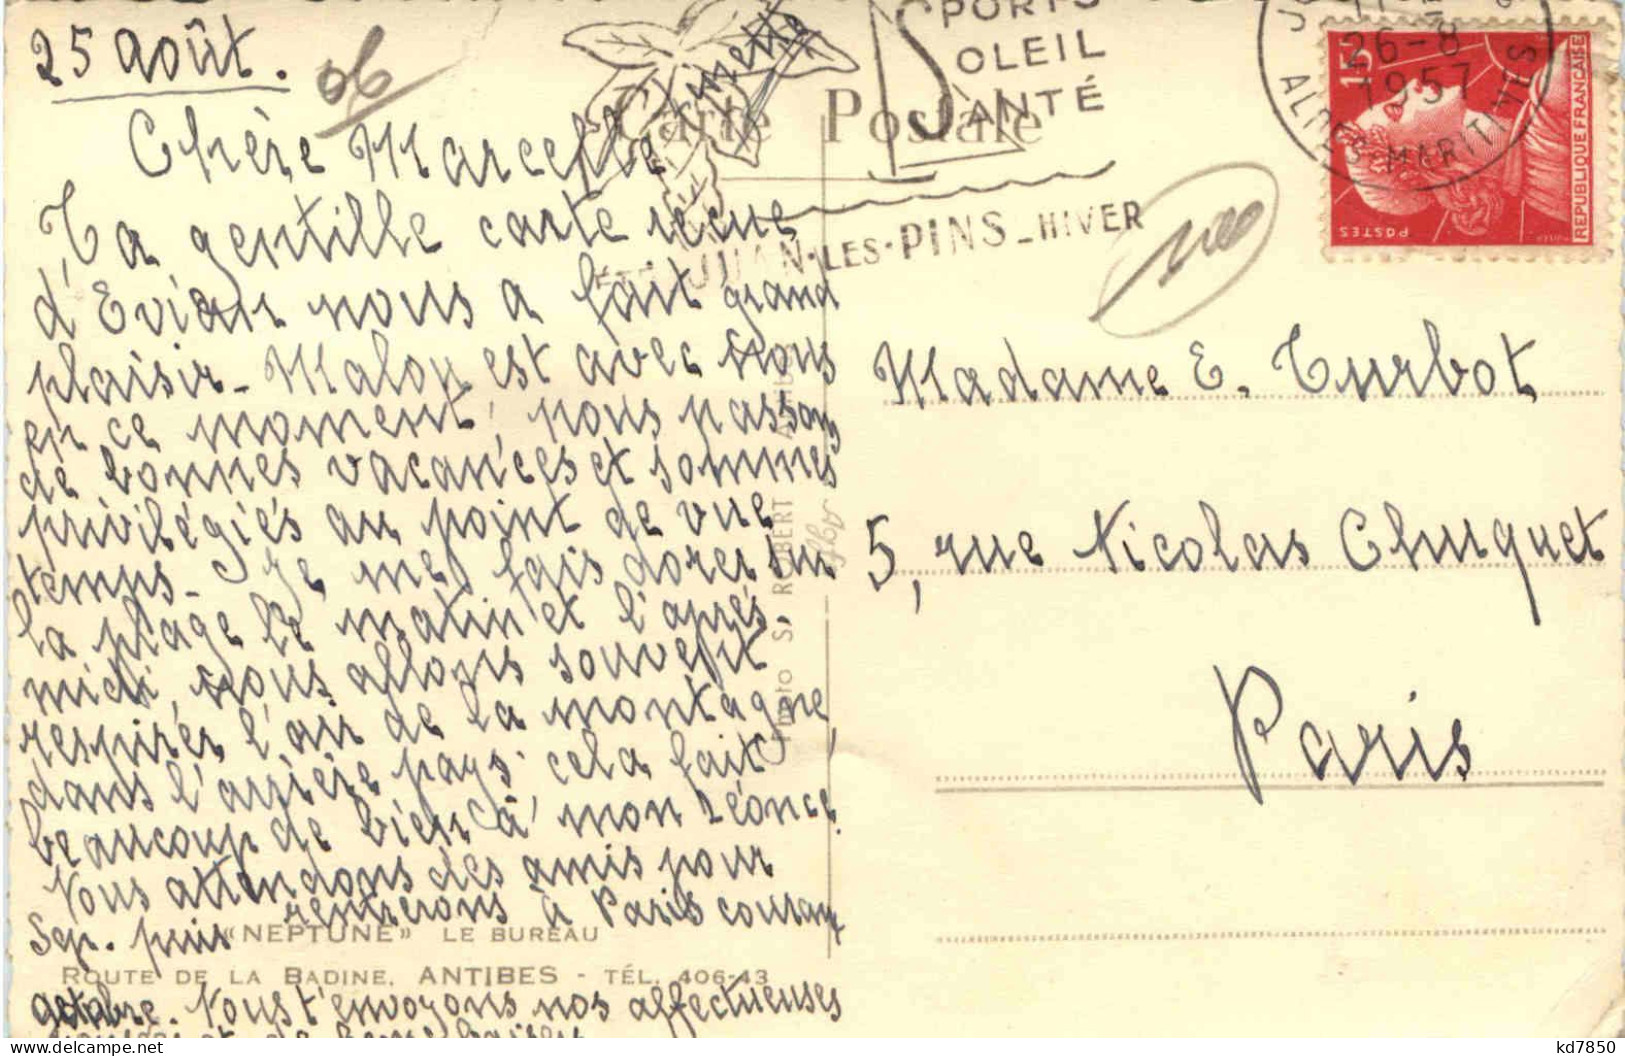 25 août.
06
Chère Marcelle
Ta gentille carte reçue
d'Evian nous a fait grand
plaisir - Malou est avec nous
en ce moment, nous passons
de bonnes vacances et sommes
privilégiés au point de vue
temps - Je me fais dorer sur
la plage le matin et l'après-
midi, nous allons souvent
respirer l'air de la montagne
dans l'arrière pays. cela fait
beaucoup de bien à mon Léonce.
Nous attendons des amis pour
Sep. puis rentrerons à Paris courant
octobre. Nous t'envoyons nos affectueuses
et de bons baisers
Carte Postale
SPORTS
SOLEIL
SANTÉ
JUAN-LES-PINS - HIVER
26-8
1957
ALPES-MARITIMES
15F
POSTES
REPUBLIQUE FRANÇAISE
Madame E. Turbot
5, rue Nicolas Chuquet
Paris
Photo S. ROBERT
«NEPTUNE» LE BUREAU
ROUTE DE LA BADINE. ANTIBES - TÉL. 406-43
kd7850